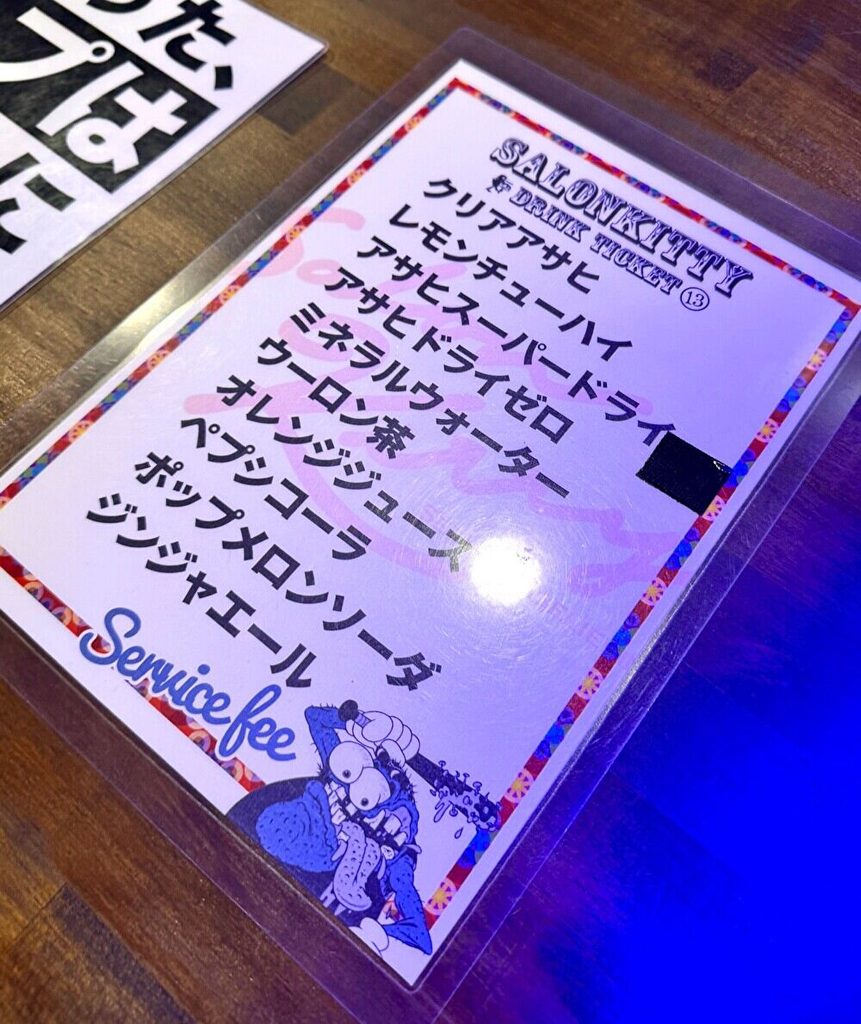 った、
プは
に
SALONKITTY
DRINK TICKET ⑬
クリアアサヒ
レモンチューハイ
アサヒスーパードライ
アサヒドライゼロ
ミネラルウォーター
ウーロン茶
オレンジジュース
ペプシコーラ
ポップメロンソーダ
ジンジャエール
Service fee